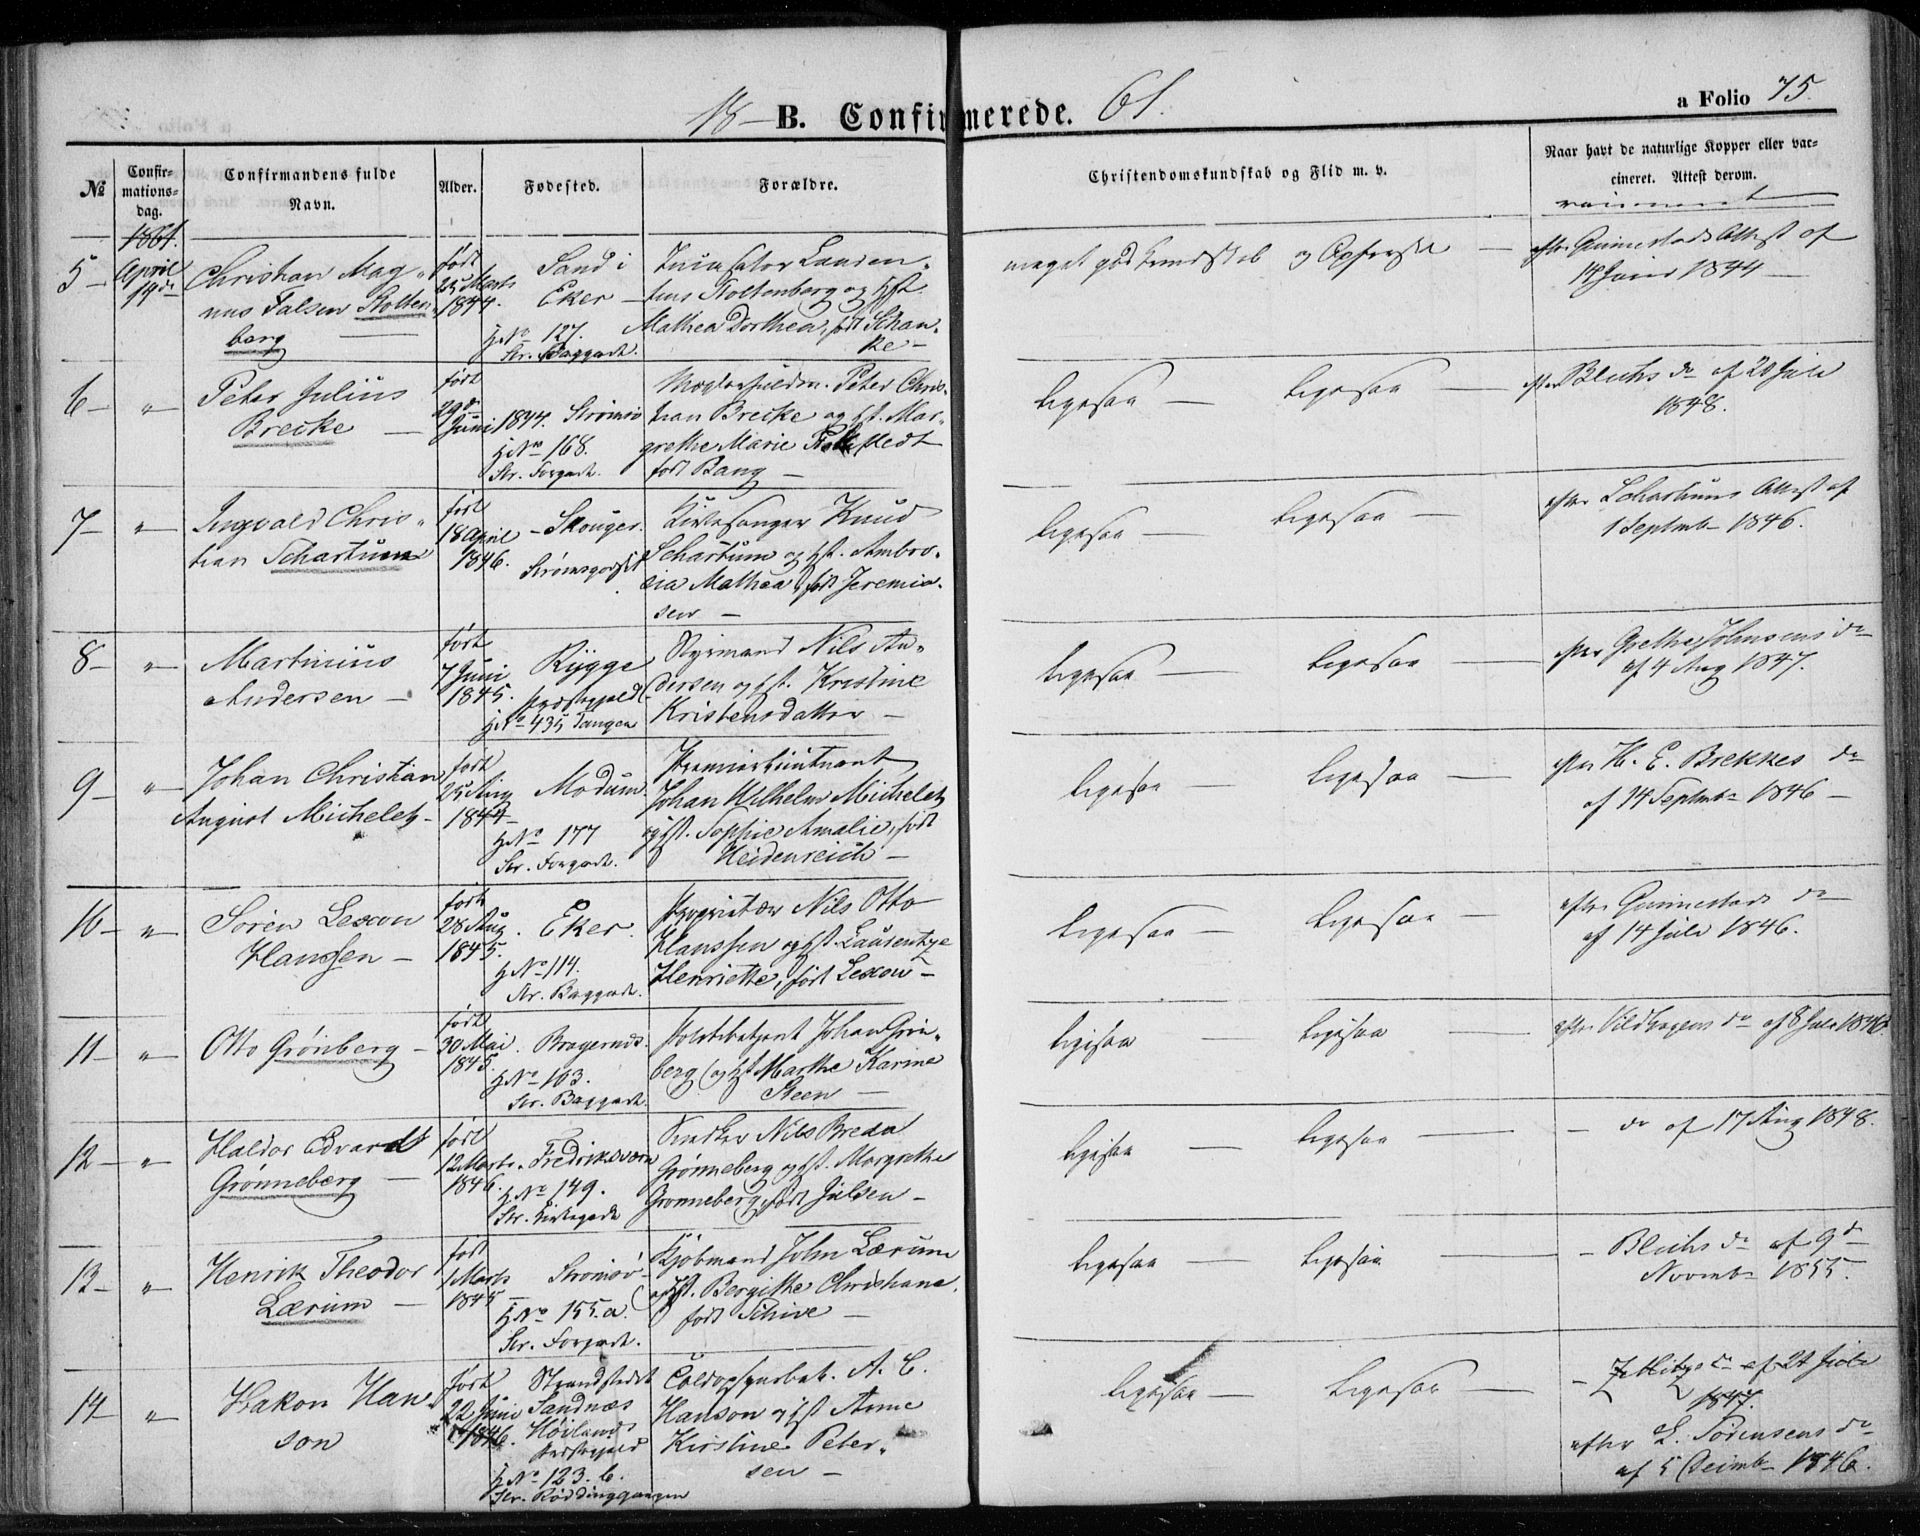 18 — B. Confirmerede. 61.
a Folio 75.
№
Confirmationsdag.
Confirmandens fulde Navn.
Alder.
Fødested.
Forældre.
Christendomskundskab og Flid m. v.
Naar havt de naturlige Kopper eller vaccineret. Attest derom.
1861.
5 — April 14de
Christian Mag-
nus Falsen Stolten-
berg
født 25 Marts 1844.
Sand i
Eker —
H№ 127.
Str. Baggade.
Stoltenberg og Hst.
Mathea Dorthea, født Schan-
ke —
meget god Kundskab og Opførsel —
efter Gunnestads Attest af
1844 —
6 — "
Peter Julius
Brecke —
født 29de Juni 1844.
Strømsø
H№ 168.
Str. Forgade.
Peter Chris-
tian Brecke og Hst. Mar-
grethe Marie
født Bang —
Ligesaa — Ligesaa —
efter Blichs do af 20 Juli
1848.
7 — "
Ingvald Chris-
tian Schartum
født 18 April 1846.
Skouger.
Strømsgodset
Kirkesanger Knud
Schartum og Hst. Ambro-
sia Mathea, født Jeremia-
sen —
Ligesaa — Ligesaa —
efter Schartums Attest af
1 Septembr 1846.
8 — "
Martinius
Andersen —
født 7 Juni 1845.
Rygge
Præstegjeld
H№ 435 Tangen
Styrmand Nils An-
dersen og Hst. Kristine
Kristensdatter —
Ligesaa — Ligesaa —
efter Grethe Johnsens do
af 4 Aug 1847.
9 — "
Johan Christian
August Michelet —
født 25 Aug 1844
Modum
H№ 177
Str. Forgade.
Premierlieutnant
Johan Wilhelm Michelet
og Hst. Sophie Amalie, født
Heidenreich —
Ligesaa — Ligesaa —
efter H. E. Brekkes do
af 14 Septembr 1846 —
10 — "
Søren Lexow
Hanssen —
født 28 Aug. 1845.
Eker.
H№ 114.
Str. Baggade.
Proprietær Nils Otto
Hanssen og Hst.
Henriette, født Lexow —
Ligesaa — Ligesaa —
efter Gunnestads do
af 14 Juli 1846.
11 — "
Otto Grönberg —
født 30 Mai 1845.
Bragernes.
H№ 103.
Str. Baggade.
Politibetjent Johan Grön-
berg og Hst Marthe Karine
Steen —
Ligesaa — Ligesaa —
efter Vildhagens do af 8 Juli
12 — "
Haldor Edvard
Grønneberg —
født 12 Marts 1846.
Fredriksværn
H№ 149.
Str. Kirkegade
Nils Breda
Grønneberg og Hst. Margrethe
Grønneberg, født Julsen —
Ligesaa — Ligesaa —
— do af 17 Aug 1848.
13 — "
Henrik Theodor
Lærum —
født 1 Marts 1845
Strømsø —
H№ 155. a.
Str. Forgade.
Kjøbmand John Lærum
og Hst. Bergitthe Christiane,
født Schive —
Ligesaa — Ligesaa —
— Blichs do af 9de
Novembr 1855.
14 — "
Hakon Han-
son
født 22 Juni 1846.
Strandstedet
Sandnæs
Høiland
Præstegjeld
H№ 123. b.
Str. Röddinggangen
Toldopsynsbet. A. C.
Hanson og Hst Anne
Kirstine Peter-
sen —
Ligesaa — Ligesaa —
do af 21 Juli
1847.
efter L. Sørensens do
af 5 Decembr 1846.